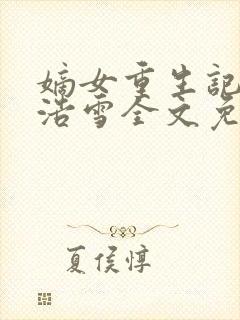 嫡女重生記
浩雪全文免
夏侯惇